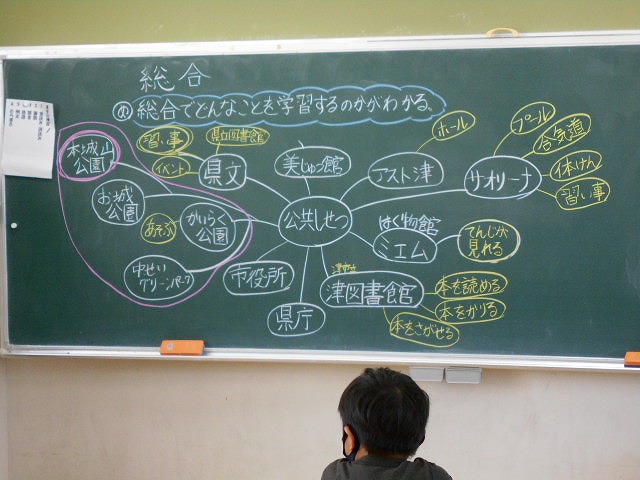 総合
め 総合でどんなことを学習するのかがわかる。
公共しせつ
美じゅつ館
アスト津
ホール
サオリーナ
プール
合気道
体けん
習い事
はく物館
ミエム
てんじが
見れる
津市立
津図書館
本を読める
本をかりる
本をさがせる
県庁
市役所
県文
県立図書館
習い事
イベント
本城山
公園
お城
公園
かいらく
公園
あそぶ
中せい
グリーンパーク